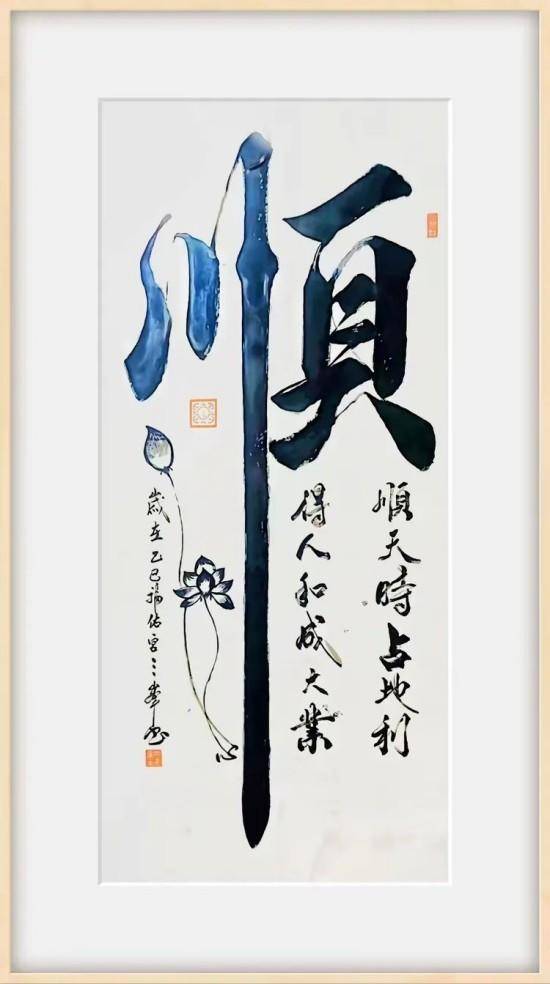 順
順天時占地利
得人和成大業
歲在乙巳福佑宮
心